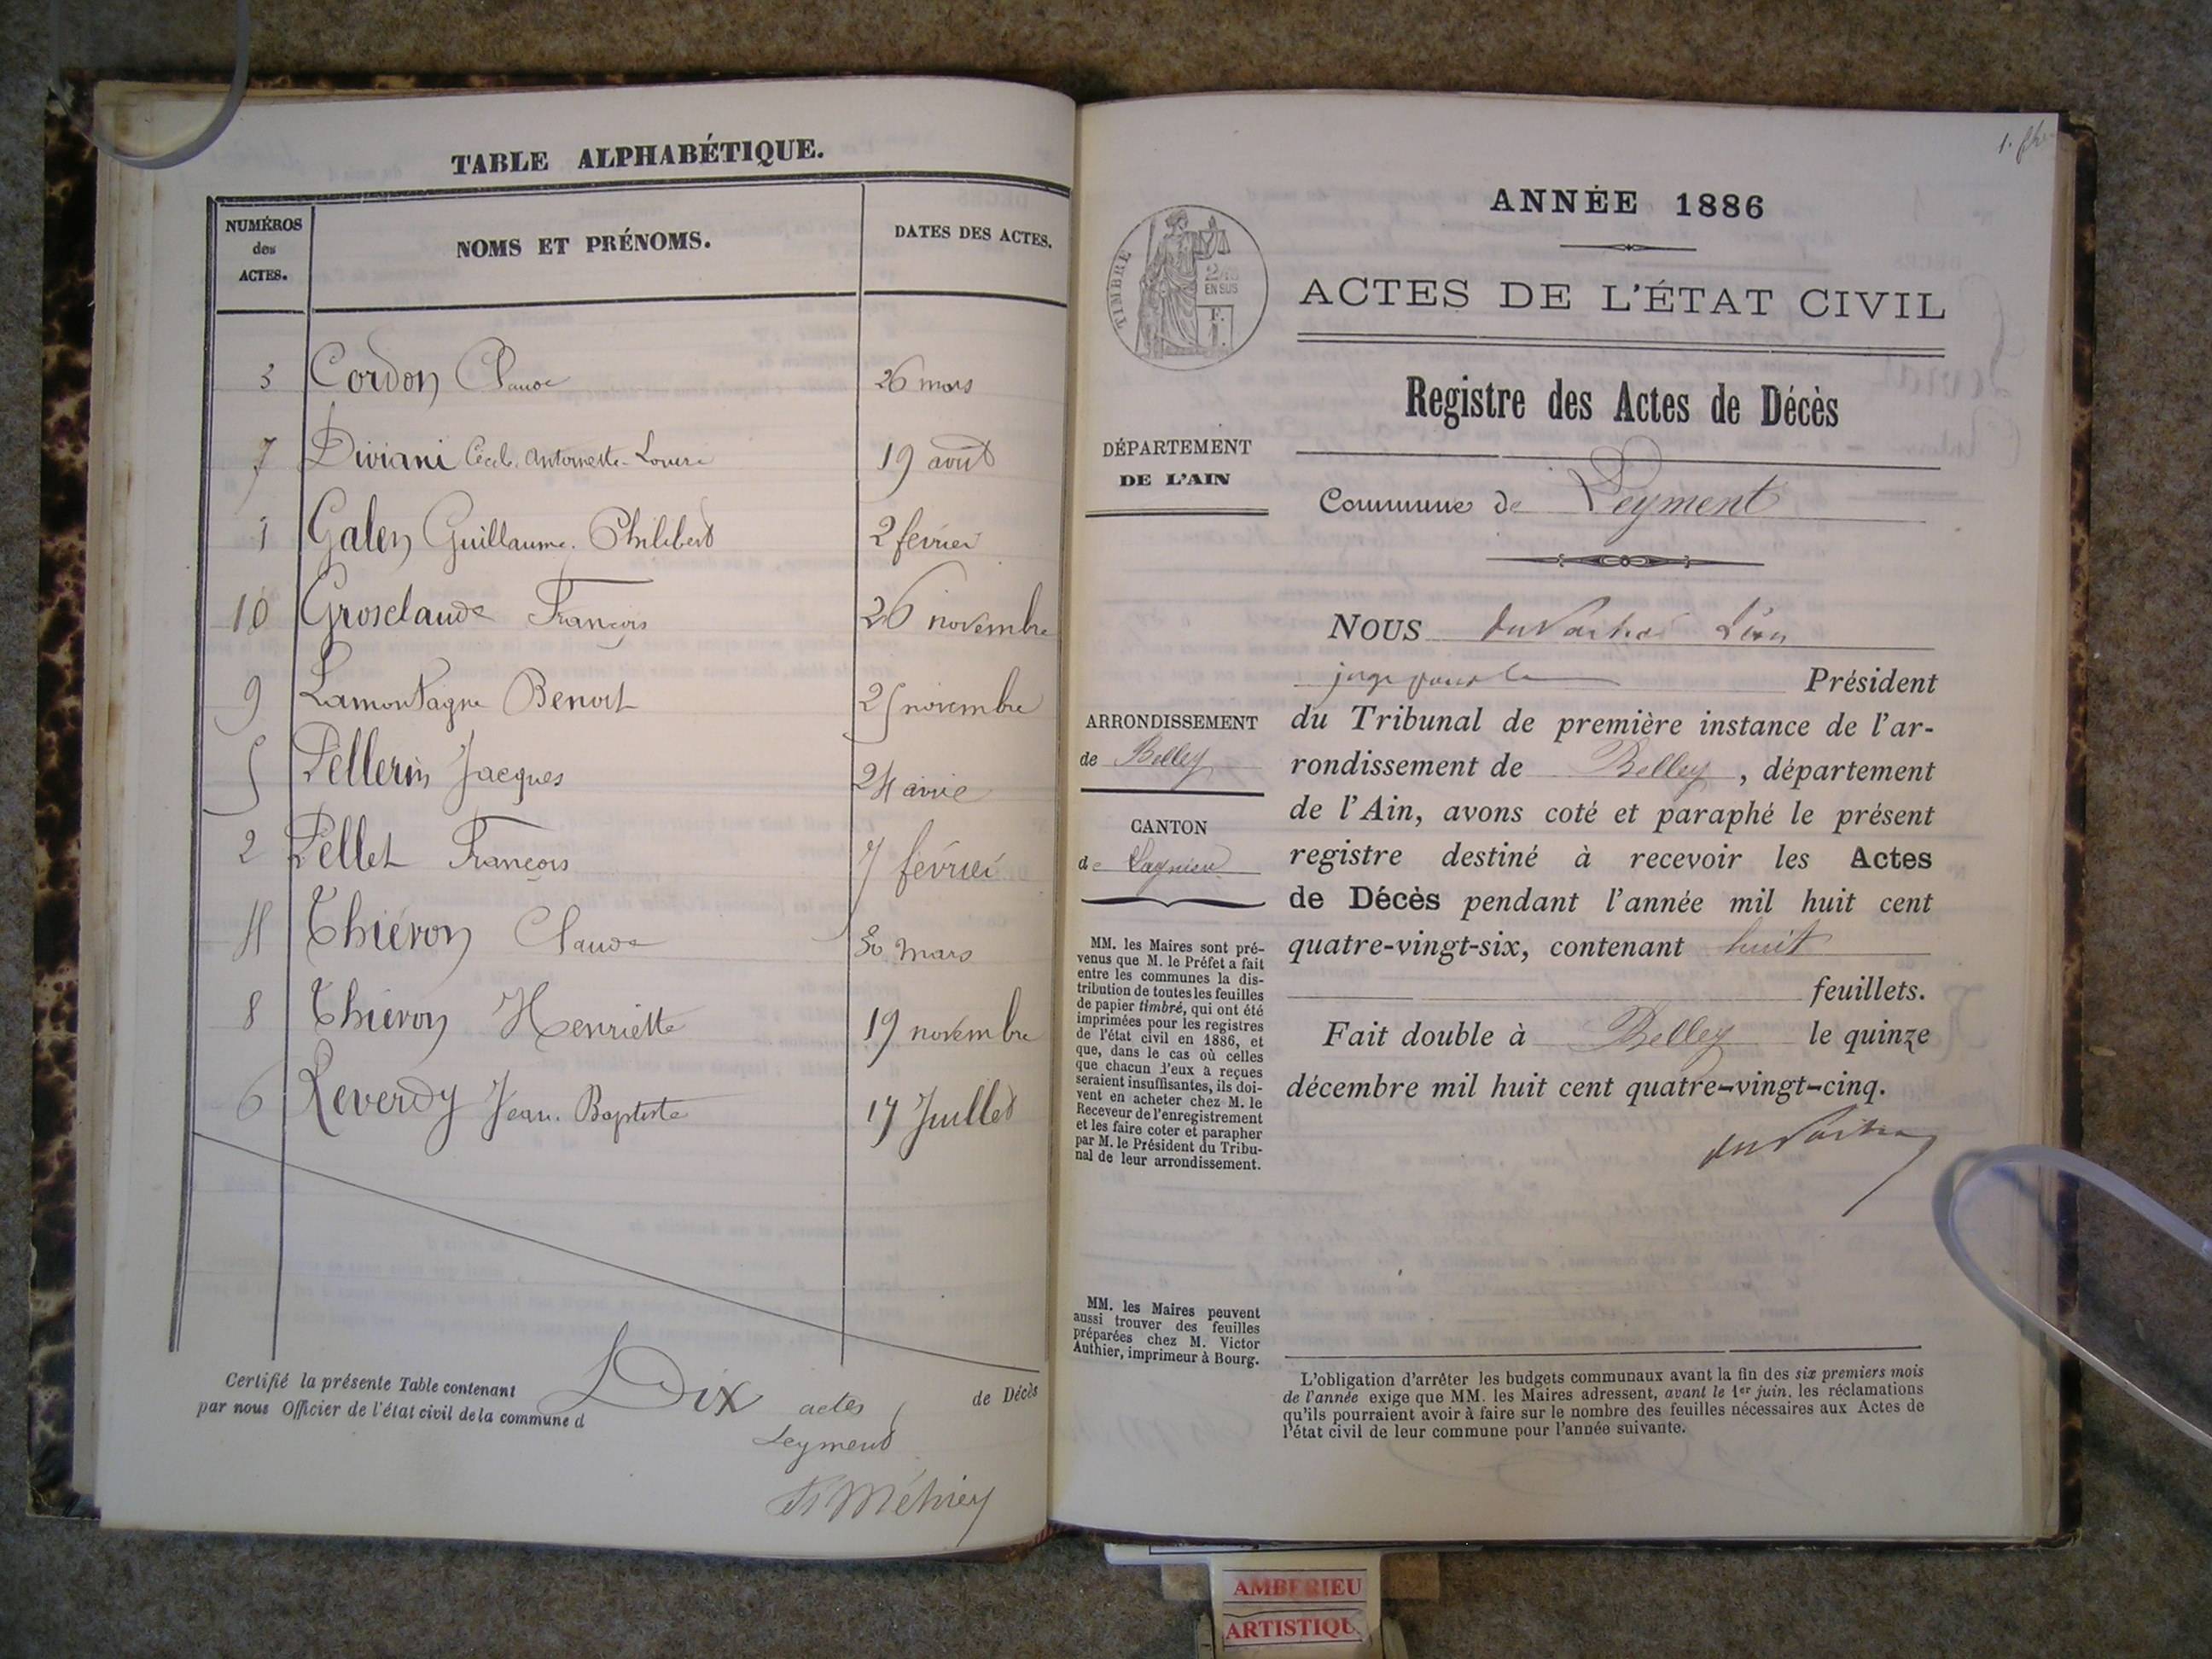 TABLE ALPHABÉTIQUE.
NUMÉROS des ACTES. NOMS ET PRÉNOMS. DATES DES ACTES.
3 Cordon Claude 26 mars
7 Diviani Cécile Antoinette Louise 19 août
1 Galen Guillaume Philibert 2 février
10 Grosclaude François 26 novembre
9 Lamontagne Benoit 25 novembre
5 Pellerin Jacques 24 avril
2 Pellet François 7 février
4 Thiévon Claude 30 mars
8 Thiévon Henriette 19 novembre
6 Reverdy Jean Baptiste 17 Juillet
Certifié la présente Table contenant Dix actes de Décès
par nous Officier de l'état civil de la commune d Leyment
ANNÉE 1886
ACTES DE L'ÉTAT CIVIL
TIMBRE
EN SUS
Registre des Actes de Décès
DÉPARTEMENT
DE L'AIN
Commune de Leyment
NOUS Léon
juge pour le Président
du Tribunal de première instance de l'ar-
rondissement de Belley, département
de l'Ain, avons coté et paraphé le présent
registre destiné à recevoir les Actes
de Décès pendant l'année mil huit cent
quatre-vingt-six, contenant huit
feuillets.
Fait double à Belley le quinze
décembre mil huit cent quatre-vingt-cinq.
ARRONDISSEMENT
de Belley
CANTON
de Lagnieu
MM. les Maires sont pré-
venus que M. le Préfet a fait
entre les communes la dis-
tribution de toutes les feuilles
de papier timbré, qui ont été
imprimées pour les registres
de l'état civil en 1886, et
que, dans le cas où celles
que chacun d'eux a reçues
seraient insuffisantes, ils doi-
vent en acheter chez M. le
Receveur de l'enregistrement
et les faire coter et parapher
par M. le Président du Tribu-
nal de leur arrondissement.
MM. les Maires peuvent
aussi trouver des feuilles
préparées chez M. Victor
Authier, imprimeur à Bourg.
L'obligation d'arrêter les budgets communaux avant la fin des six premiers mois
de l'année exige que MM. les Maires adressent, avant le 1er juin, les réclamations
qu'ils pourraient avoir à faire sur le nombre des feuilles nécessaires aux Actes de
l'état civil de leur commune pour l'année suivante.
AMBERIEU
ARTISTIQU